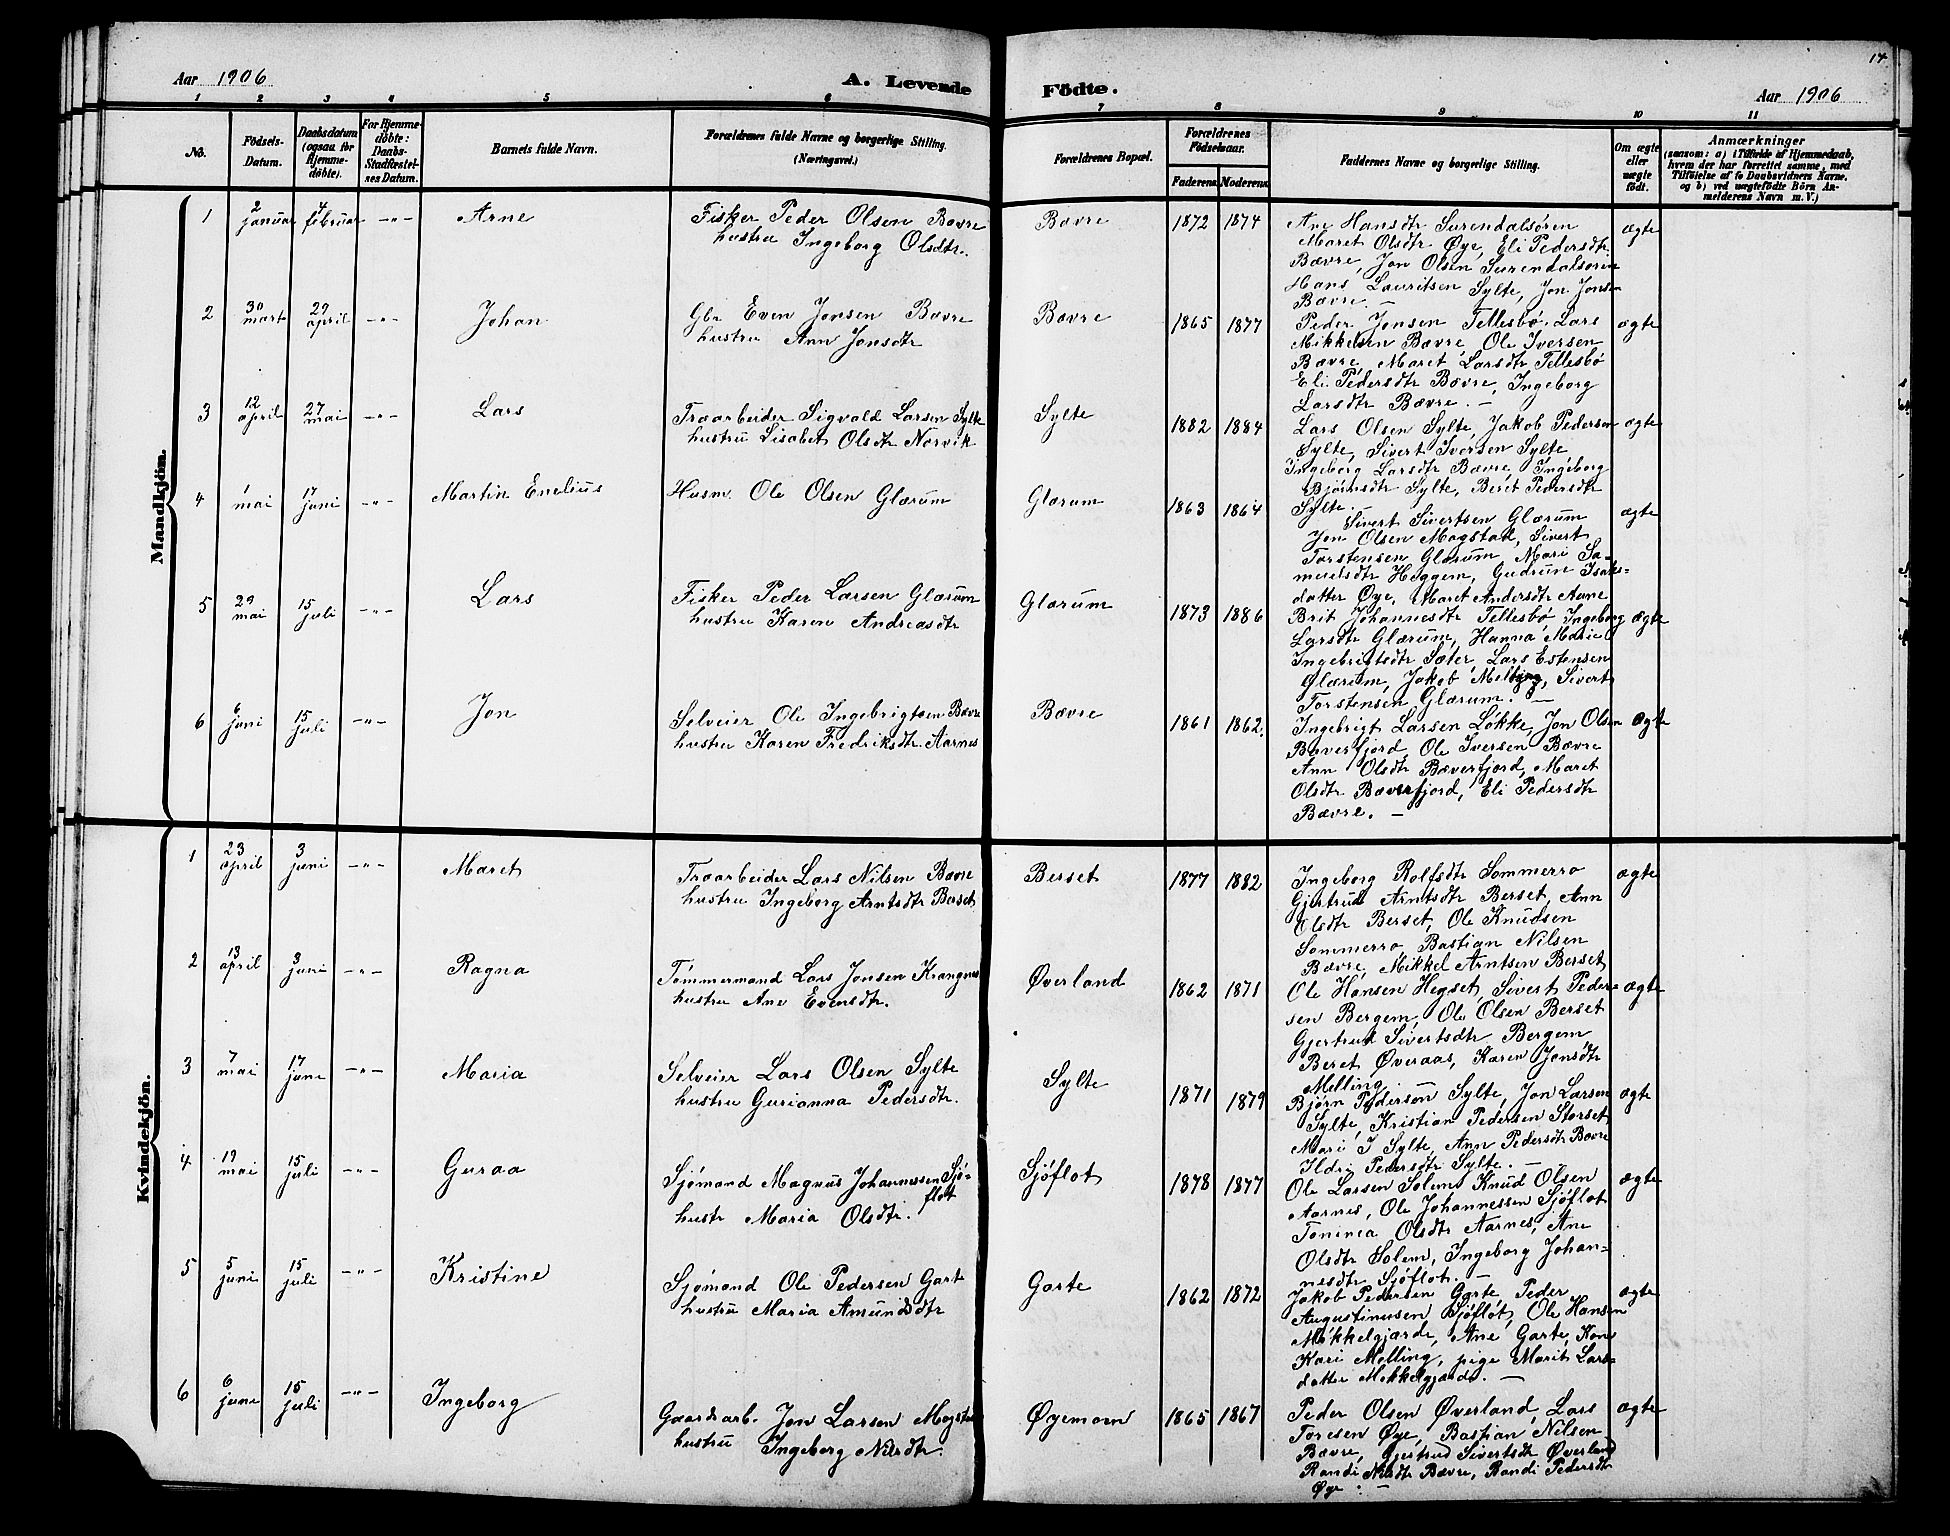 Aar 1906
A. Levende
Födte.
Aar 1906
14
1 2 3 4 5 6 7 8 9 10 11
No.
Födsels-
Datum.
Daabsdatum
(ogsaa for
Hjemme-
döbte).
For Hjemme-
döbte:
Daabs-
Stadfæstel-
ses Datum.
Barnets fulde Navn.
Forældrenes fulde Navne og borgerlige Stilling.
(Næringsvei.)
Forældrenes Bopæl.
Forældrenes
Födselsaar.
Faderens. Moderens.
Faddernes Navne og borgerlige Stilling.
Om ægte
eller
uægte
födt.
Anmærkninger
(saasom: a) i Tilfælde af Hjemmedaab,
hvem der har forrettet samme, med
Tilföielse af to Daabsvidners Navne.
og b) ved uægtefödte Börn An-
melderens Navn m.V.)
Mandkjön.
1
2
januar
4
februar
-"-
Arne
Fisker Peder Olsen Bævre
hustru Ingeborg Olsdtr.
Bævre
1872 1874
Ane Hansdtr Surendalsøren
Maret Olsdtr Øye, Eli Pedersdtr
Bævre, Jon Olsen Surendalsøren
Hans Lauritsen Sylte, Jon Jonsen
Bævre. -
ægte
2
30
mart
29
april
-"-
Johan
Gbr Even Jonsen Bævre
hustru Ann Jonsdtr
Bævre
1865 1877
Peder Jonsen Tellesbø, Lars
Mikkelsen Bævre, Ole Iversen
Bævre, Maret Larsdtr Tellesbø
Eli Pedersdtr Bævre, Ingeborg
Larsdtr Bævre. -
ægte
3
12
april
27
mai
-"-
Lars
Træarbeider Sigvald Larsen Sylte
hustru Lisabet Olsdtr Nørvik
Sylte
1882 1884
Lars Olsen Sylte, Jakob Pedersen
Sylte, Sivert Iversen Sylte
Ingeborg Larsdtr Bævre, Ingeborg
Bjørnsdtr Sylte, Beret Pedersdtr
Sylte. -
ægte
4
1
mai
17
juni
-"-
Martin Enelius
Husm. Ole Olsen Glærum
Glærum
1863 1864
Sivert Sivertsen Glærum
Jon Olsen Mogstad, Sivert
Torstensen Glærum, Mari Sa-
muelsdtr Heggem, Gudrun Isaks-
datter Øye, Maret Andersdtr Aune
ægte
5
29
mai
15
juli
-"-
Lars
Fisker Peder Larsen Glærum
hustru Karen Andreasdtr
Glærum
1873 1886
Brit Johannesdtr Tellesbø, Ingeborg
Larsdtr Glærum, Hanna Marie
Ingebrigtsdtr Sæter, Lars Estensen
Glærum, Jakob Melling, Sivert
Torstensen Glærum. -
ægte
6
6
juni
15
juli
-"-
Jon
Selveier Ole Ingebrigtsen Bævre
hustru Karen Fredriksdtr. Aarnes
Bævre
1861 1862.
Ingebrigt Larsen Løkke, Jon Olsen
Bæverfjord, Ole Iversen Bævre
Ann Olsdtr Bæverfjord, Maret
Olsdtr Bæverfjord, Eli Pedersdtr
Bævre. -
ægte
Kvindekjön.
1
23
april
3
juni
-"-
Maret
Træarbeider Lars Nilsen Bævre
hustru Ingeborg Arntsdtr Berset
Berset
1877 1882
Ingeborg Rolfsdtr Sommerro
Gjertrud Arntsdtr Berset, Ann
Olsdtr Berset, Ole Knudsen
Sommerro, Bastian Nilsen
Bævre, Mikkel Arntsen Berset
ægte
2
13
april
3
juni
-"-
Ragna
Tømmermand Lars Jonsen Krangnes
hustru Ane Evensdtr.
Øverland
1862 1871
Ole Hansen Hegset, Sivert Peder-
sen Bergem, Ole Olsen Berset
Gjertrud Sivertsdtr Bergem
Beret Øveraas, Karen Jonsdtr
Melling. -
ægte
3
7
mai
17
june
-"-
Maria
Selveier Lars Olsen Sylte
hustru Gurianna Pedersdtr.
Sylte
1871 1879
Bjørn Pedersen Sylte, Jon Larsen
Sylte, Kristian Pedersen Storset
Mari J Sylte, Ann Pedersdtr Bævre
Ildri Pedersdtr Sylte. -
ægte
4
19
mai
15
juli
-"-
Guraa
Sjømand Magnus Johannessen Sjø-
flot
hustr Maria Olsdtr.
Sjøflot
1878 1877
Ole Larsen Solem, Knud Olsen
Aarnes, Ole Johannessen Sjøflot
Toninia Olsdtr Aarnes, Ane
Olsdtr Solem, Ingeborg Johan-
nesdtr Sjøflot. -
ægte
5
5
juni
15
juli
-"-
Kristine
Sjømand Ole Pedersen Garte
hustru Maria Amundsdtr
Garte
1862 1872
Jakob Pedersen Garte, Peder
Augustinusen Sjøflot, Ole Hansen
Mikkelgjærde, Ane Garte, Kone
Kari Melling, pige Marit Lars-
datter Mikkelgjærde. -
ægte
6
6
june
15
juli
-"-
Ingeborg
Gaardarb. Jon Larsen Mogstad
hustru Ingeborg Nilsdtr.
Øyemoen
1865 1867
Peder Olsen Øverland, Lars
Toresen Øye, Bastian Nilsen
Bævre, Gjertrud Sivertsdtr Øverland
Randi Nilsdtr Bævre, Randi Pedersdtr
Øye. -
ægte